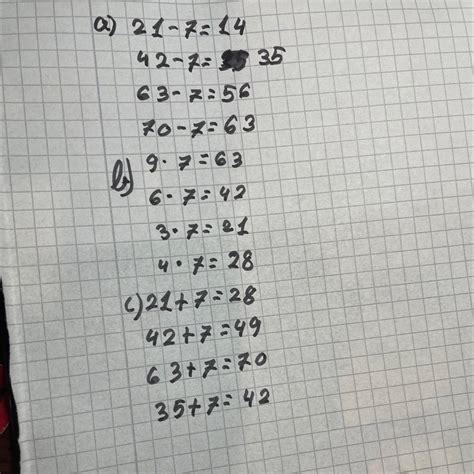 a) 21-7=14
42-7= 35
63-7=56
70-7=63
b) 9·7=63
6·7=42
3·7=21
4·7=28
c) 21+7=28
42+7=49
63+7=70
35+7=42